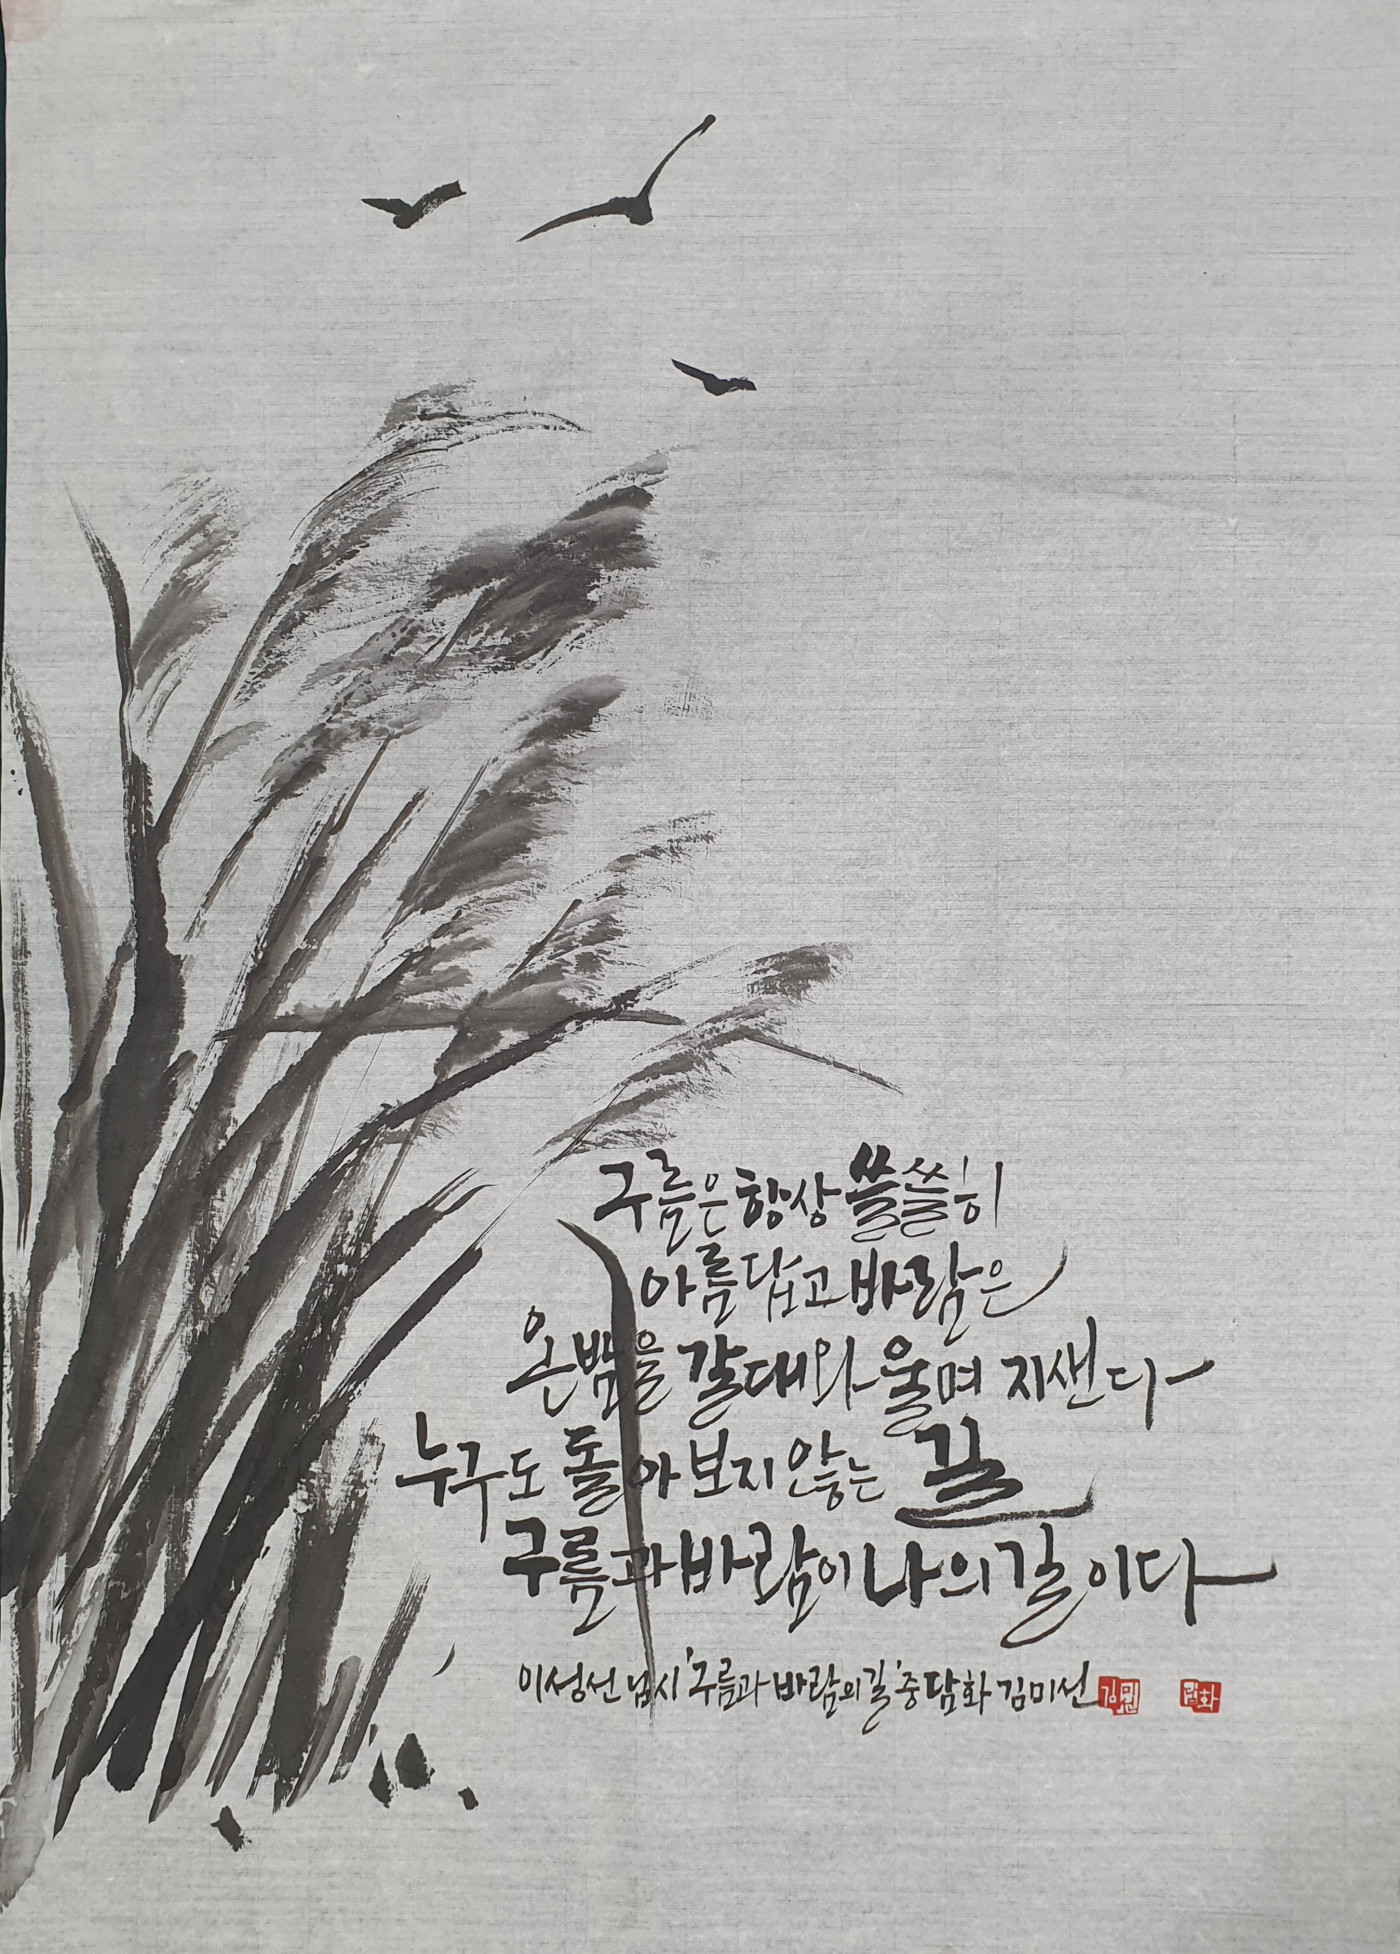 구름은 항상 쓸쓸히
아름답고 바람은
온밤을 갈대와 울며 지샌다
누구도 돌아보지 않는 길
구름과 바람이 나의 길이다
이성선님 시 '구름과 바람의 길' 중 담화 김미선
담화